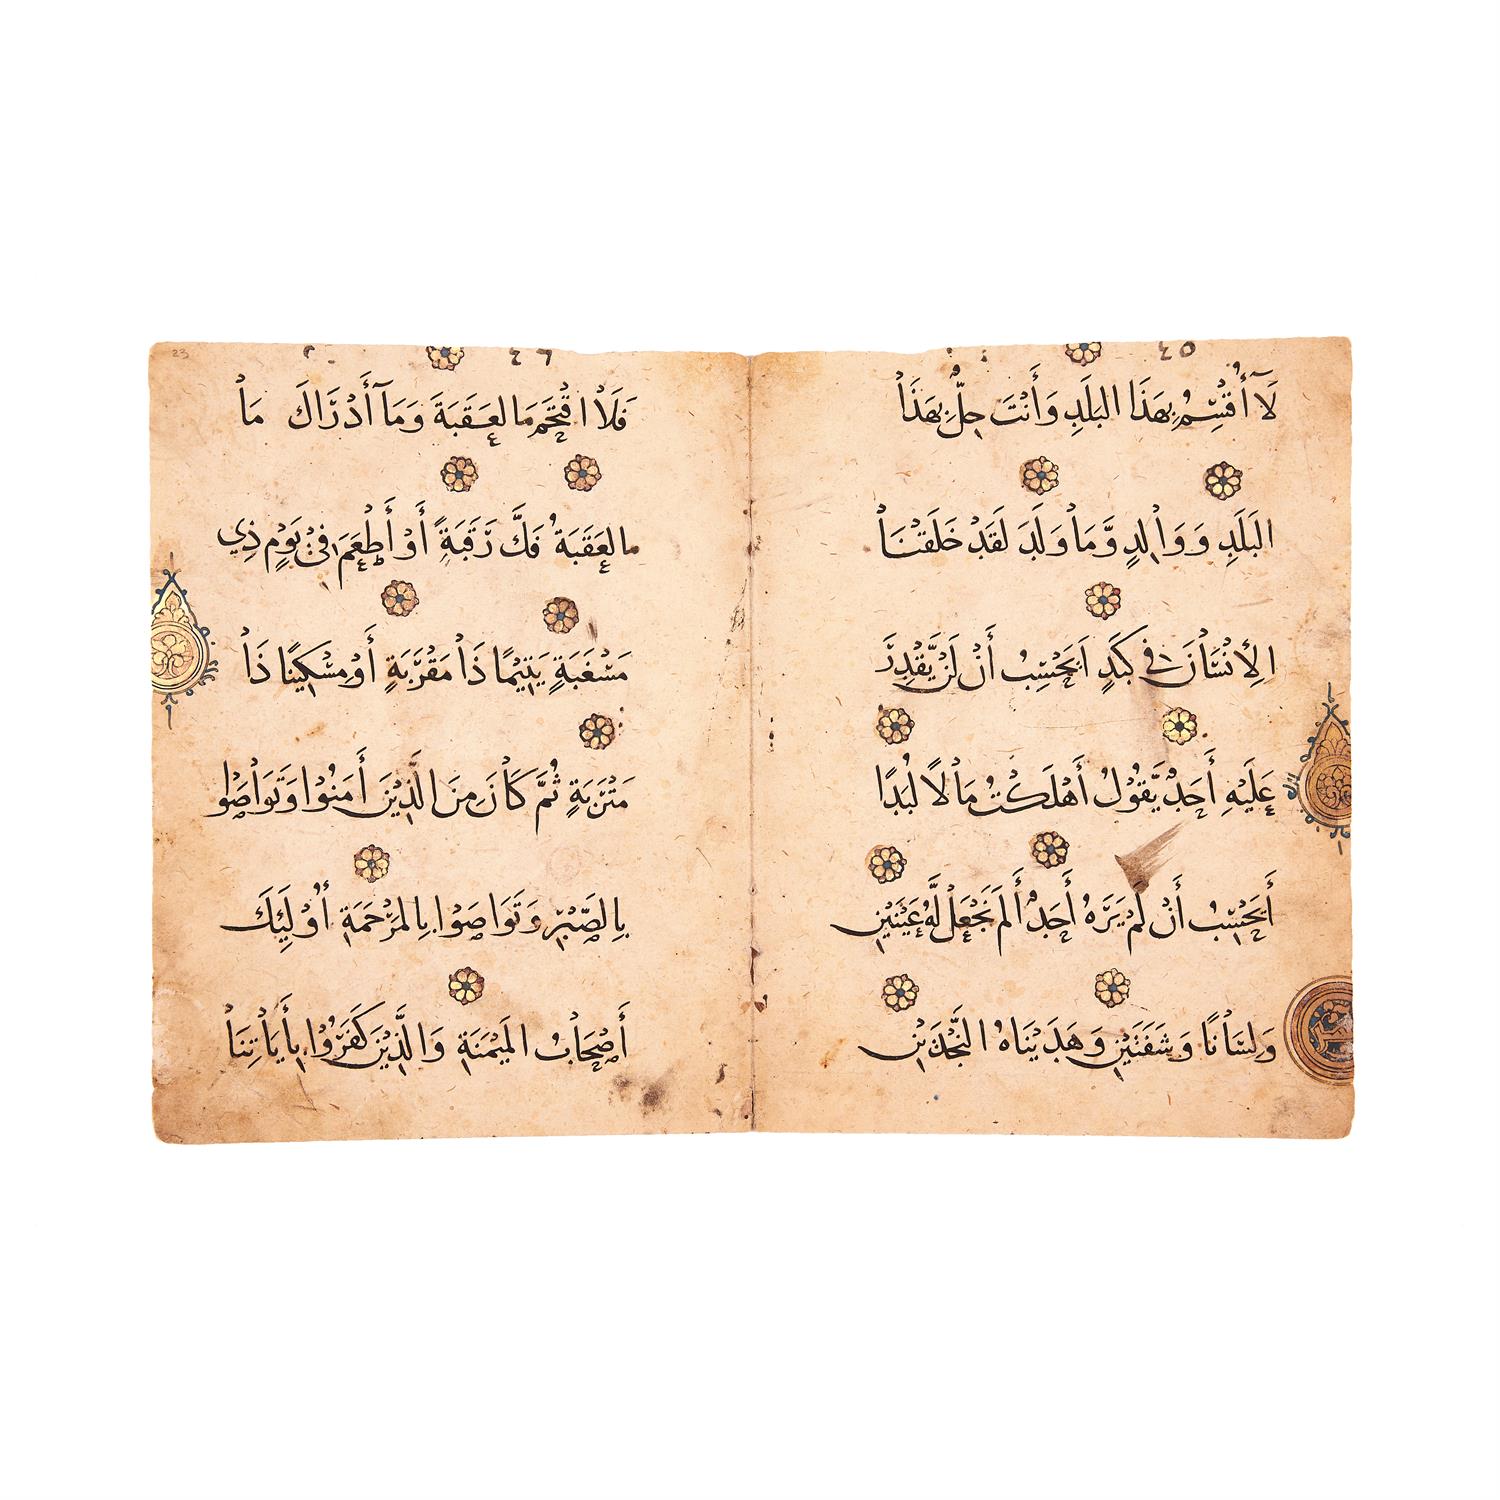 ٤٥
لَآ أُقْسِمُ بِهَذَا الْبَلَدِ وَأَنْتَ حِلٌّ بِهَذَا
الْبَلَدِ وَوَالِدٍ وَّمَا وَلَدَ لَقَدْ خَلَقْنَا
الْإِنْسَانَ فِي كَبَدٍ أَيَحْسِبُ أَنْ لَنْ يَّقْدِرَ
عَلَيْهِ أَحَدٌ يَّقُوْلُ أَهْلَكْتُ مَالًا لُبَدًا
أَيَحْسِبُ أَنْ لَمْ يَرَهُ أَحَدٌ أَلَمْ نَجْعَلْ لَّهُ عَيْنَيْنِ
وَلِسَانًا وَشَفَتَيْنِ وَهَدَيْنَاهُ النَّجْدَيْنِ
23
٤٦
فَلَا اقْتَحَمَ الْعَقَبَةَ وَمَآ أَدْرَاكَ مَا
الْعَقَبَةُ فَكَّ رَقَبَةً أَوْ أَطْعَمَ فِيْ يَوْمٍ ذِي
مَسْغَبَةٍ يَتِيْمًا ذَا مَقْرَبَةٍ أَوْ مِسْكِيْنًا ذَا
مَتْرَبَةٍ ثُمَّ كَانَ مِنَ الَّذِيْنَ أَمَنُوْا وَتَوَاصَوْا
بِالصَّبْرِ وَتَوَاصَوْا بِالْمَرْحَمَةِ أُوْلَئِكَ
أَصْحَابُ الْمَيْمَنَةِ وَالَّذِيْنَ كَفَرُوْا بِأَيَاتِنَا